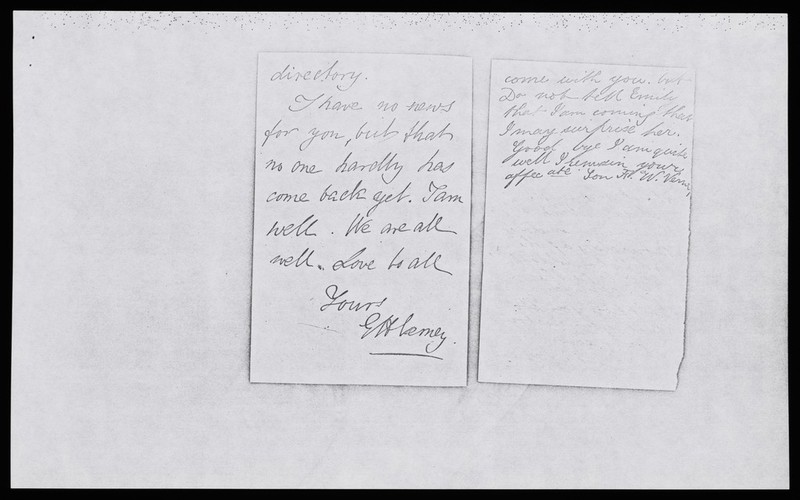 directory.
I have no news
for you, but that
no one hardly has
come back yet. I am
well. We are all
well. Love to all
Yours
come with you. but
Do not tell Emily
that I am coming that
I may surprise her.
Good bye I am quite
well I remain yours
affec ate Son W.